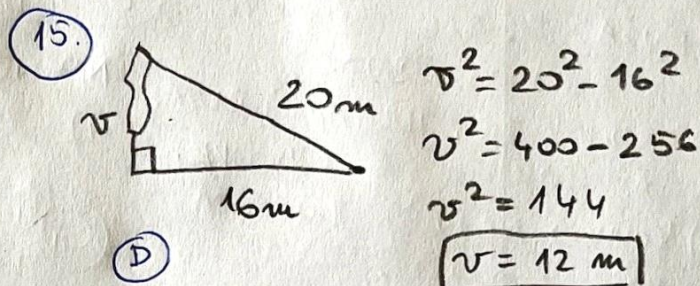 15.
20m
v
16m
D
v² = 20² - 16²
v² = 400 - 256
v² = 144
v = 12 m